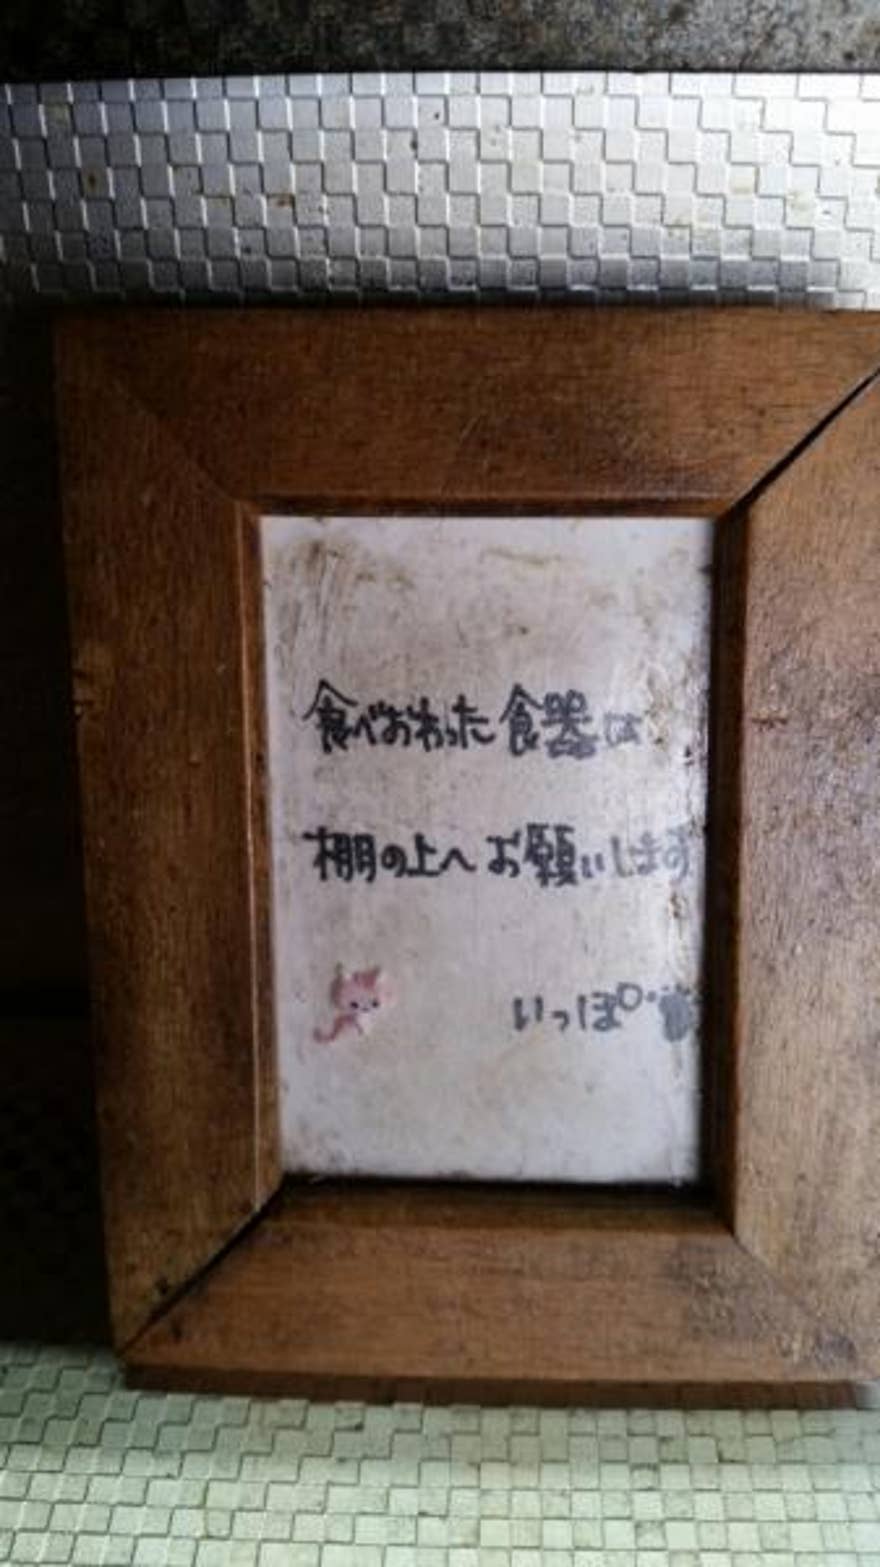 食べおわった食器は
棚の上へお願いします
いっぽ